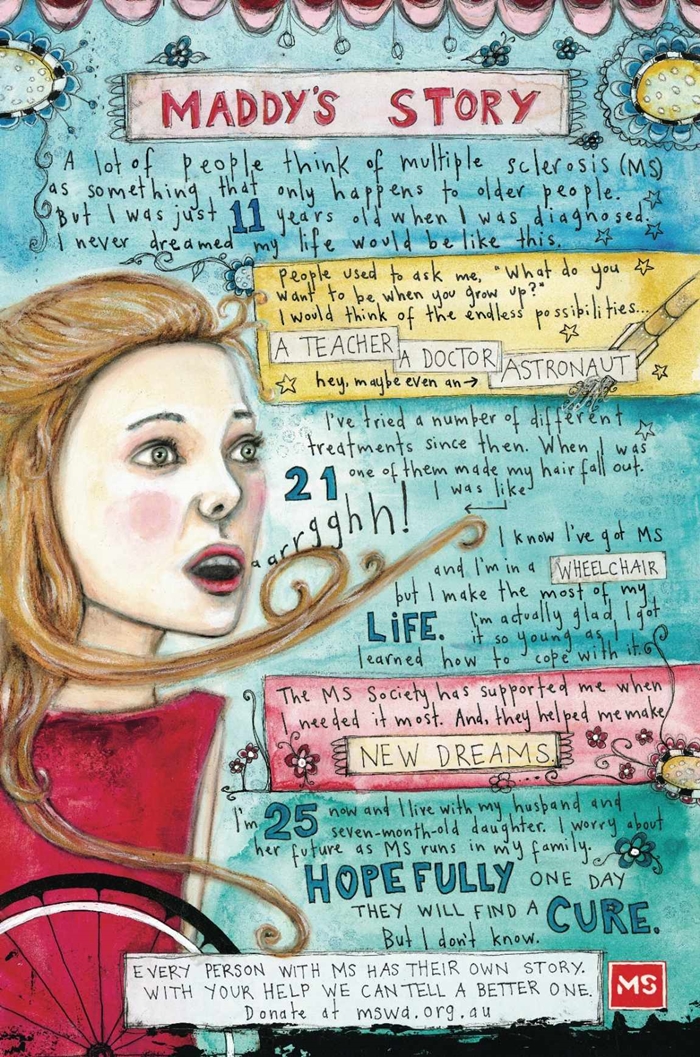 MADDY'S STORY
A lot of people think of multiple sclerosis (MS)
as something that only happens to older people.
But I was just 11 years old when I was diagnosed.
I never dreamed my life would be like this.
People used to ask me, "What do you
want to be when you grow up?"
I would think of the endless possibilities...
A TEACHER A DOCTOR ASTRONAUT
hey, maybe even an →
I've tried a number of different
treatments since then. When I was
21 one of them made my hair fall out.
I was like
aarrgghh!
I know I've got MS
and I'm in a WHEELCHAIR
but I make the most of my
LiFE. I'm actually glad I got
it so young as I
learned how to cope with it.
The MS Society has supported me when
I needed it most. And, they helped me make
NEW DREAMS
...
I'm 25 now and I live with my husband and
seven-month-old daughter. I worry about
her future as MS runs in my family.
HOPEFULLY ONE DAY
THEY WILL FIND A CURE.
But I don't know.
EVERY PERSON WITH MS HAS THEIR OWN STORY.
WITH YOUR HELP WE CAN TELL A BETTER ONE.
Donate at mswa.org.au
MS